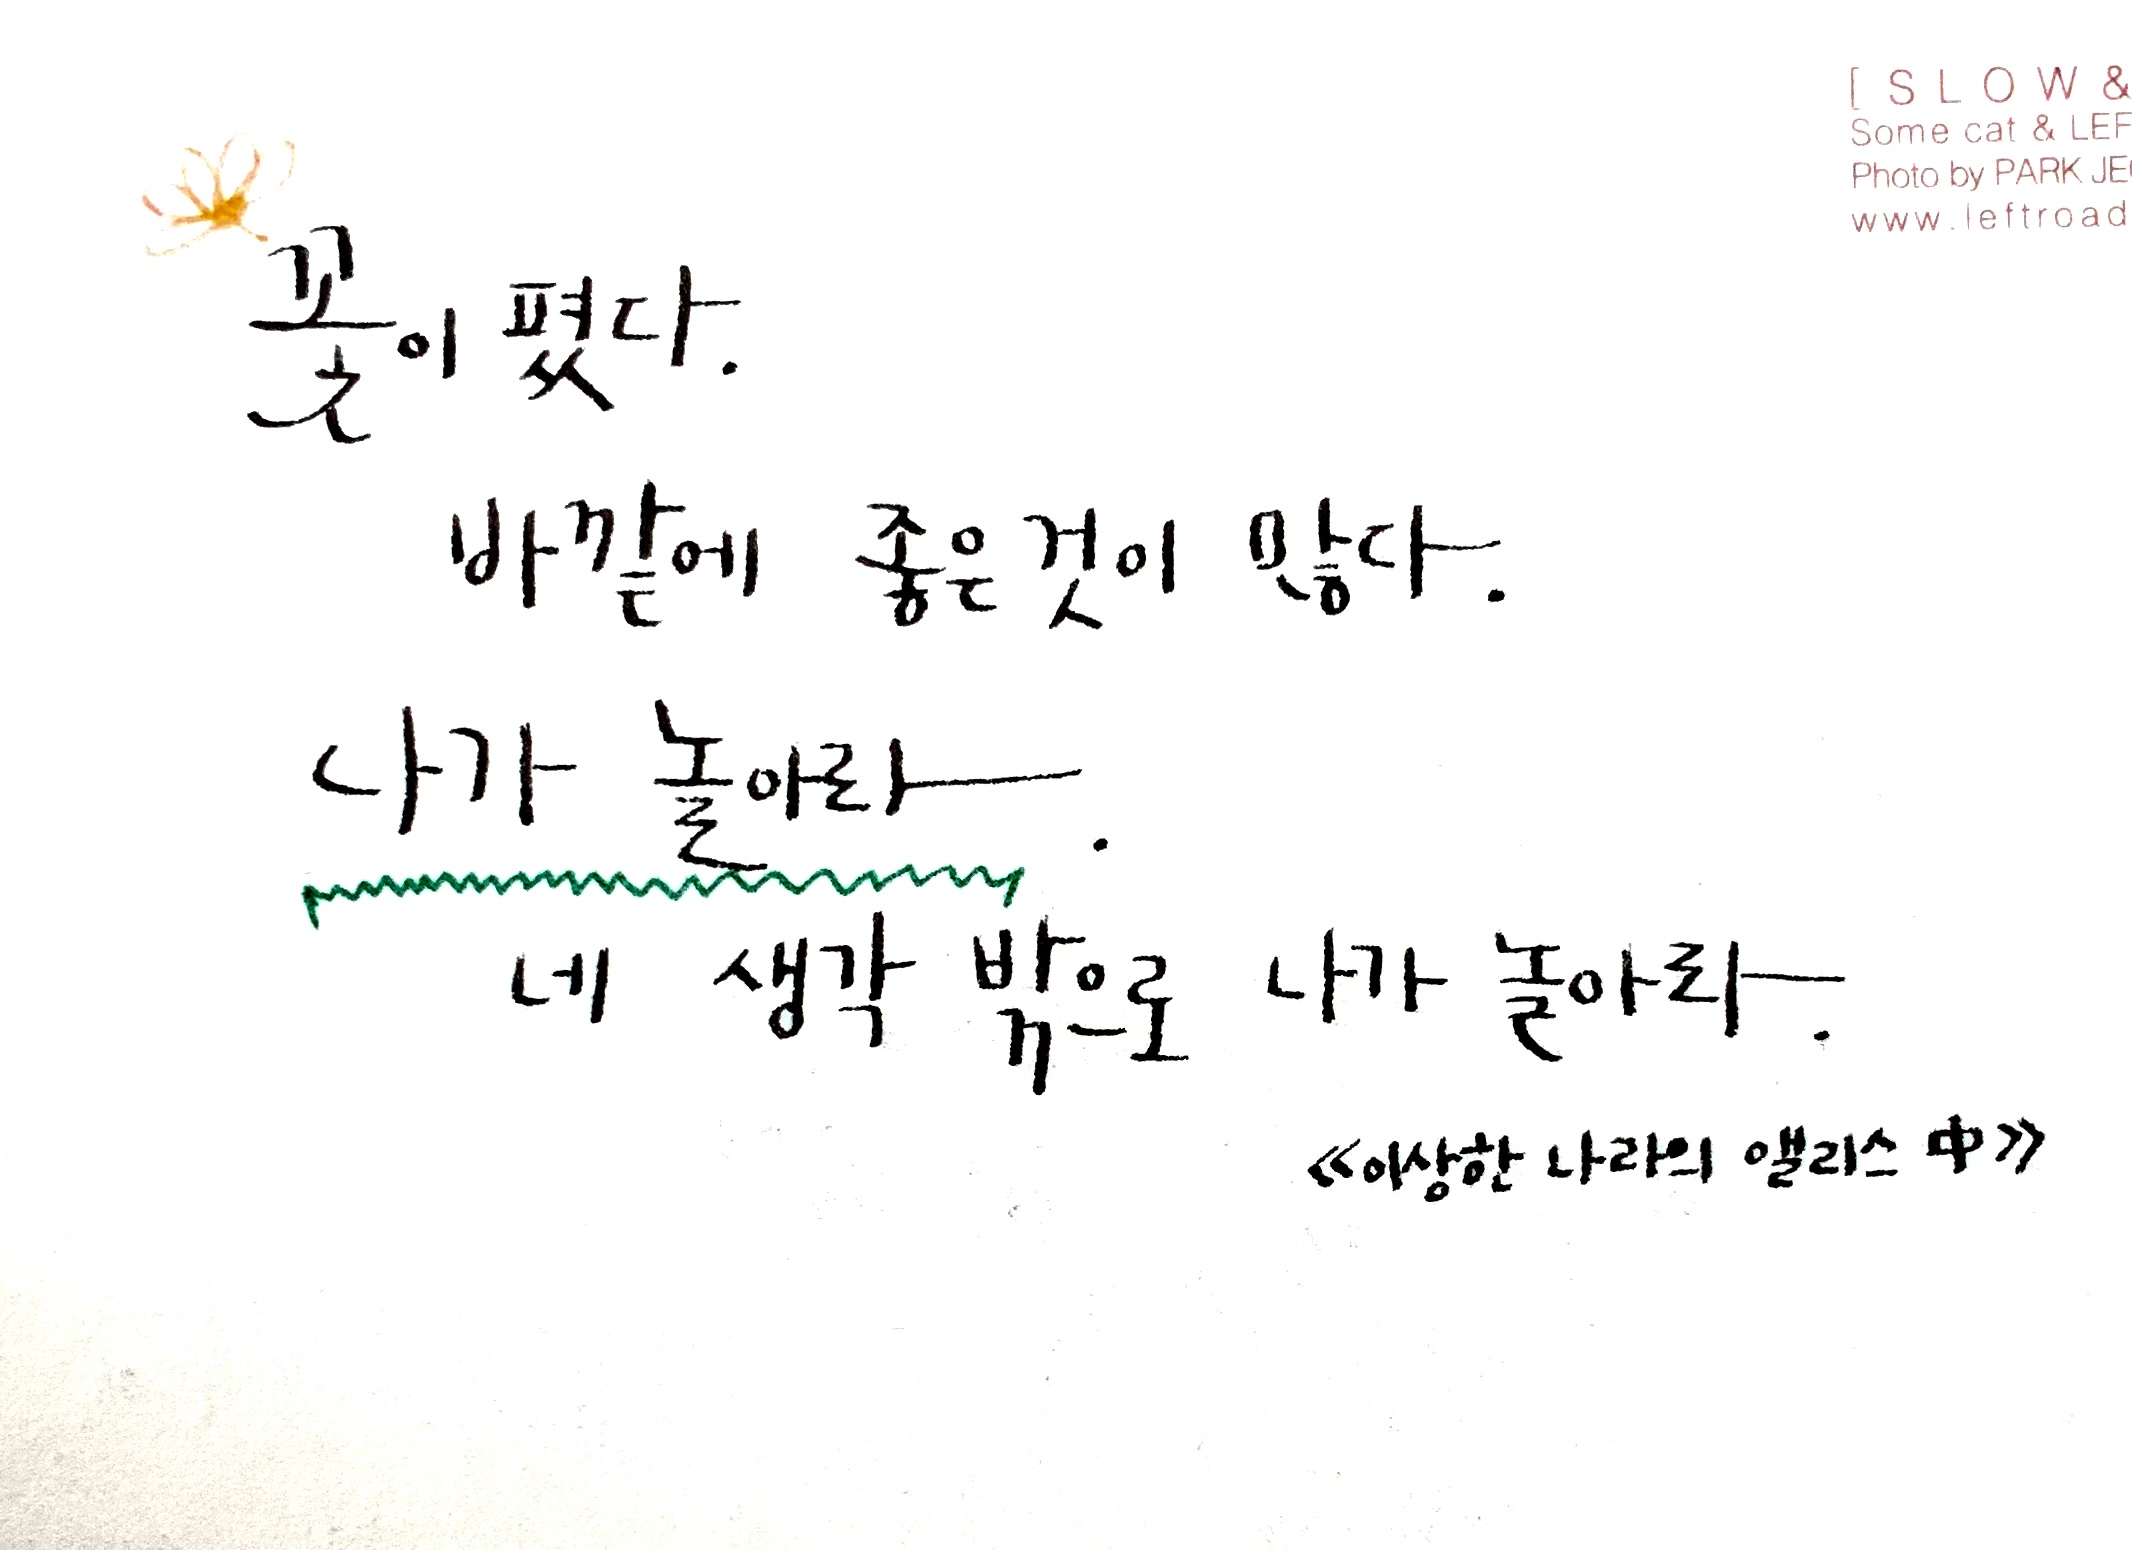 [ SLOW &
Some cat & LEF
Photo by PARK
www.leftroad
꽃이 폈다.
바깥에 좋은것이 많다.
나가 놀아라.
네 생각 밖으로 나가 놀아라.
《이상한 나라의 앨리스 中》